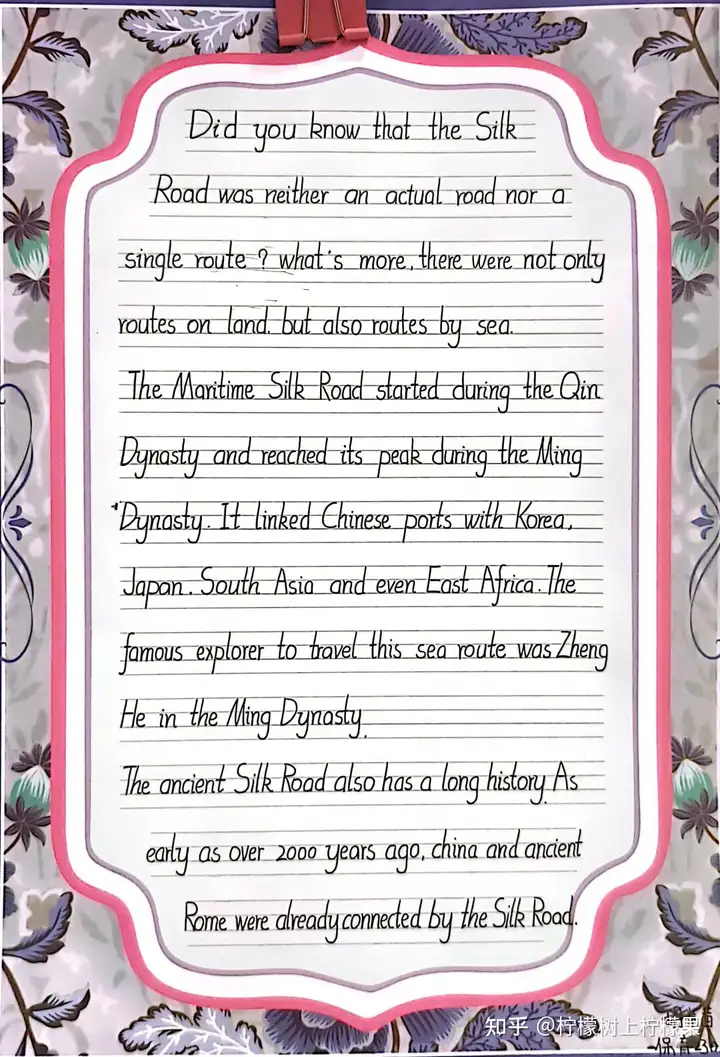 Did you know that the Silk
Road was neither an actual road nor a
single route? what's more, there were not only
routes on land. but also routes by sea.
The Maritime Silk Road started during the Qin
Dynasty and reached its peak during the Ming
Dynasty. It linked Chinese ports with Korea,
Japan. South Asia and even East Africa. The
famous explorer to travel this sea route was Zheng
He in the Ming Dynasty.
The ancient Silk Road also has a long history. As
early as over 2000 years ago, china and ancient
Rome were already connected by the Silk Road.
知乎 @柠檬树上柠檬果